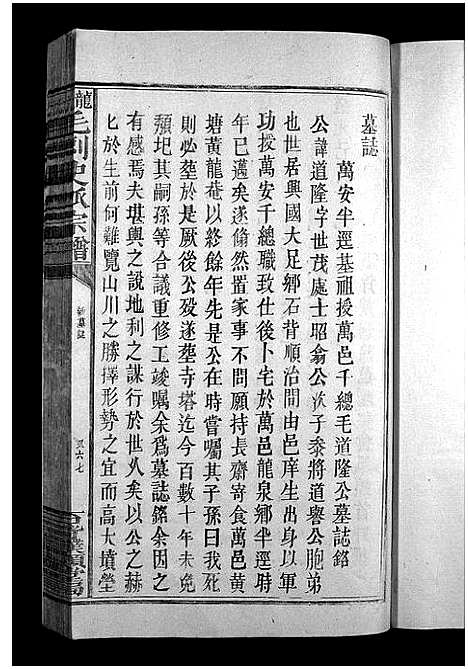 墓誌
萬安半逕基祖授萬邑千總毛道隆公墓誌銘
公諱道隆字世茂處士昭翁公次子叅將道譽公胞弟
也世居興國大足鄉石背順治間由邑庠生出身以軍
功授萬安千總職致仕後卜宅於萬邑龍泉鄉半逕時
年已邁矣遂翛然置家事不問願持長齋寄食萬邑黃
塘黃龍菴以終餘年先是公在時嘗囑其子孫曰我死
則必塟於是厥後公歿遂塟寺塔迄今百數十年未免
頽圯其嗣孫等合議重修工竣囑余爲墓誌銘余因之
有感焉夫堪輿之說地利之謀行於世久矣以公之赫
匕於生前何難覽山川之勝擇形勢之宜而高大墳塋
龍毛刺史派宗譜
墓誌